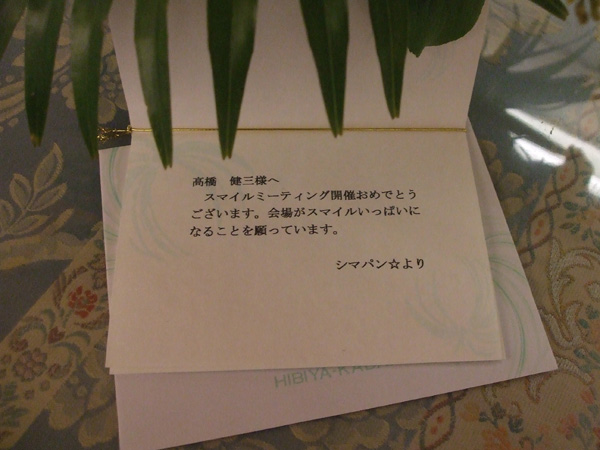 高橋　健三様へ
　スマイルミーティング開催おめでとう
ございます。会場がスマイルいっぱいに
なることを願っています。
シマパン☆より
HIBIYA-KADA